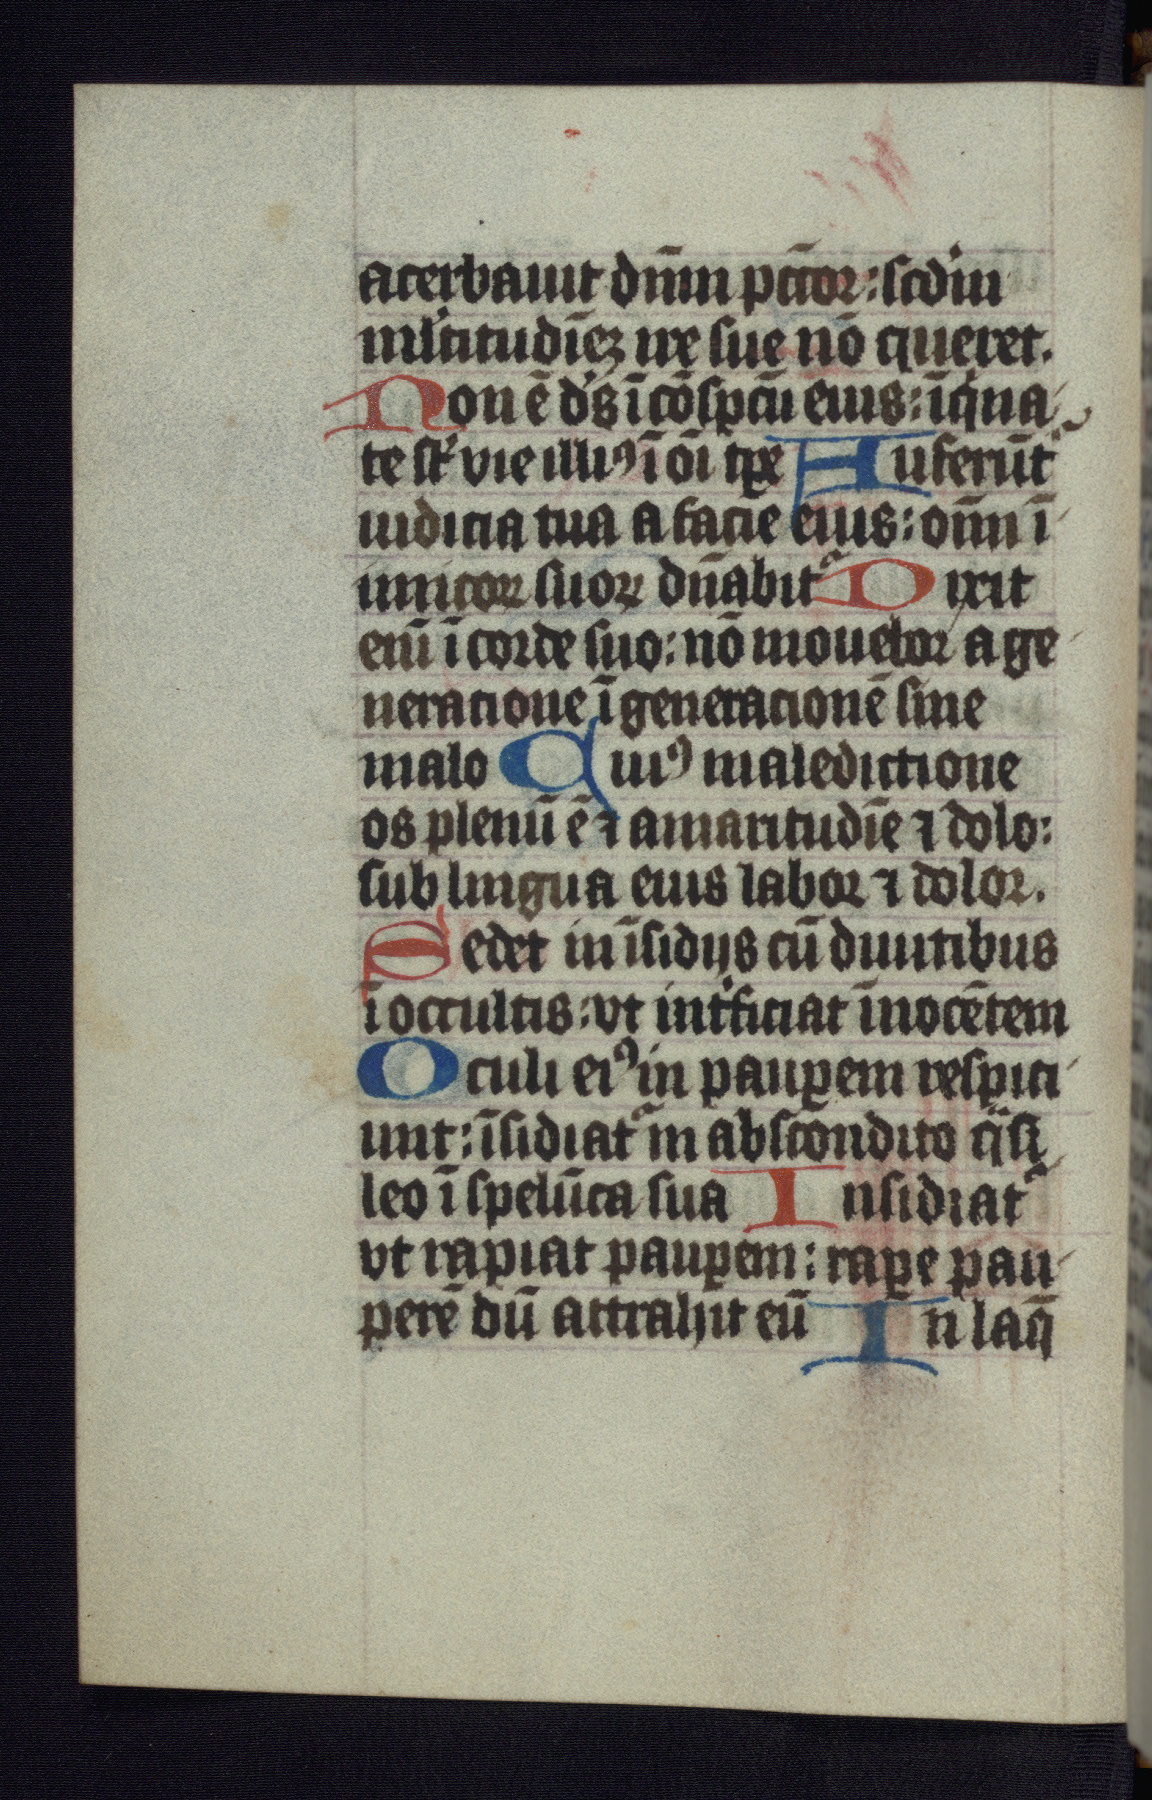 acerbauit dn̄m pctōr: scd'm
ml'titudīeꝫ ire sue nō queret.
Non ē d's ī cōspcū eius: īqⁱna-
te sūt vie illiꝰ ī oī tp̄e Auferūnt᷑
iudicia tua a facie eius: oīm ī-
imicoꝝ suoꝝ dn̄abit᷑ Dixit
enī ī corde suo: nō mouebor a ge-
neracione ī generacionē sine
malo Cuiꝰ maledictione
os plenū ē ⁊ amaritudīe ⁊ dolo:
sub lingua eius labor ⁊ dolor.
Sedet in īsidijs cū diuitibus
ī occultis: vt int'ficiat īnocētem
Oculi eiꝰ in paup̱em respici-
unt: īsidiat᷑ in abscōndito qᵃsi
leo ī spelūca sua Insidiat᷑
vt rapiat paup̱em: rap̱e pau-
perē dū attrahit eū In laq̄